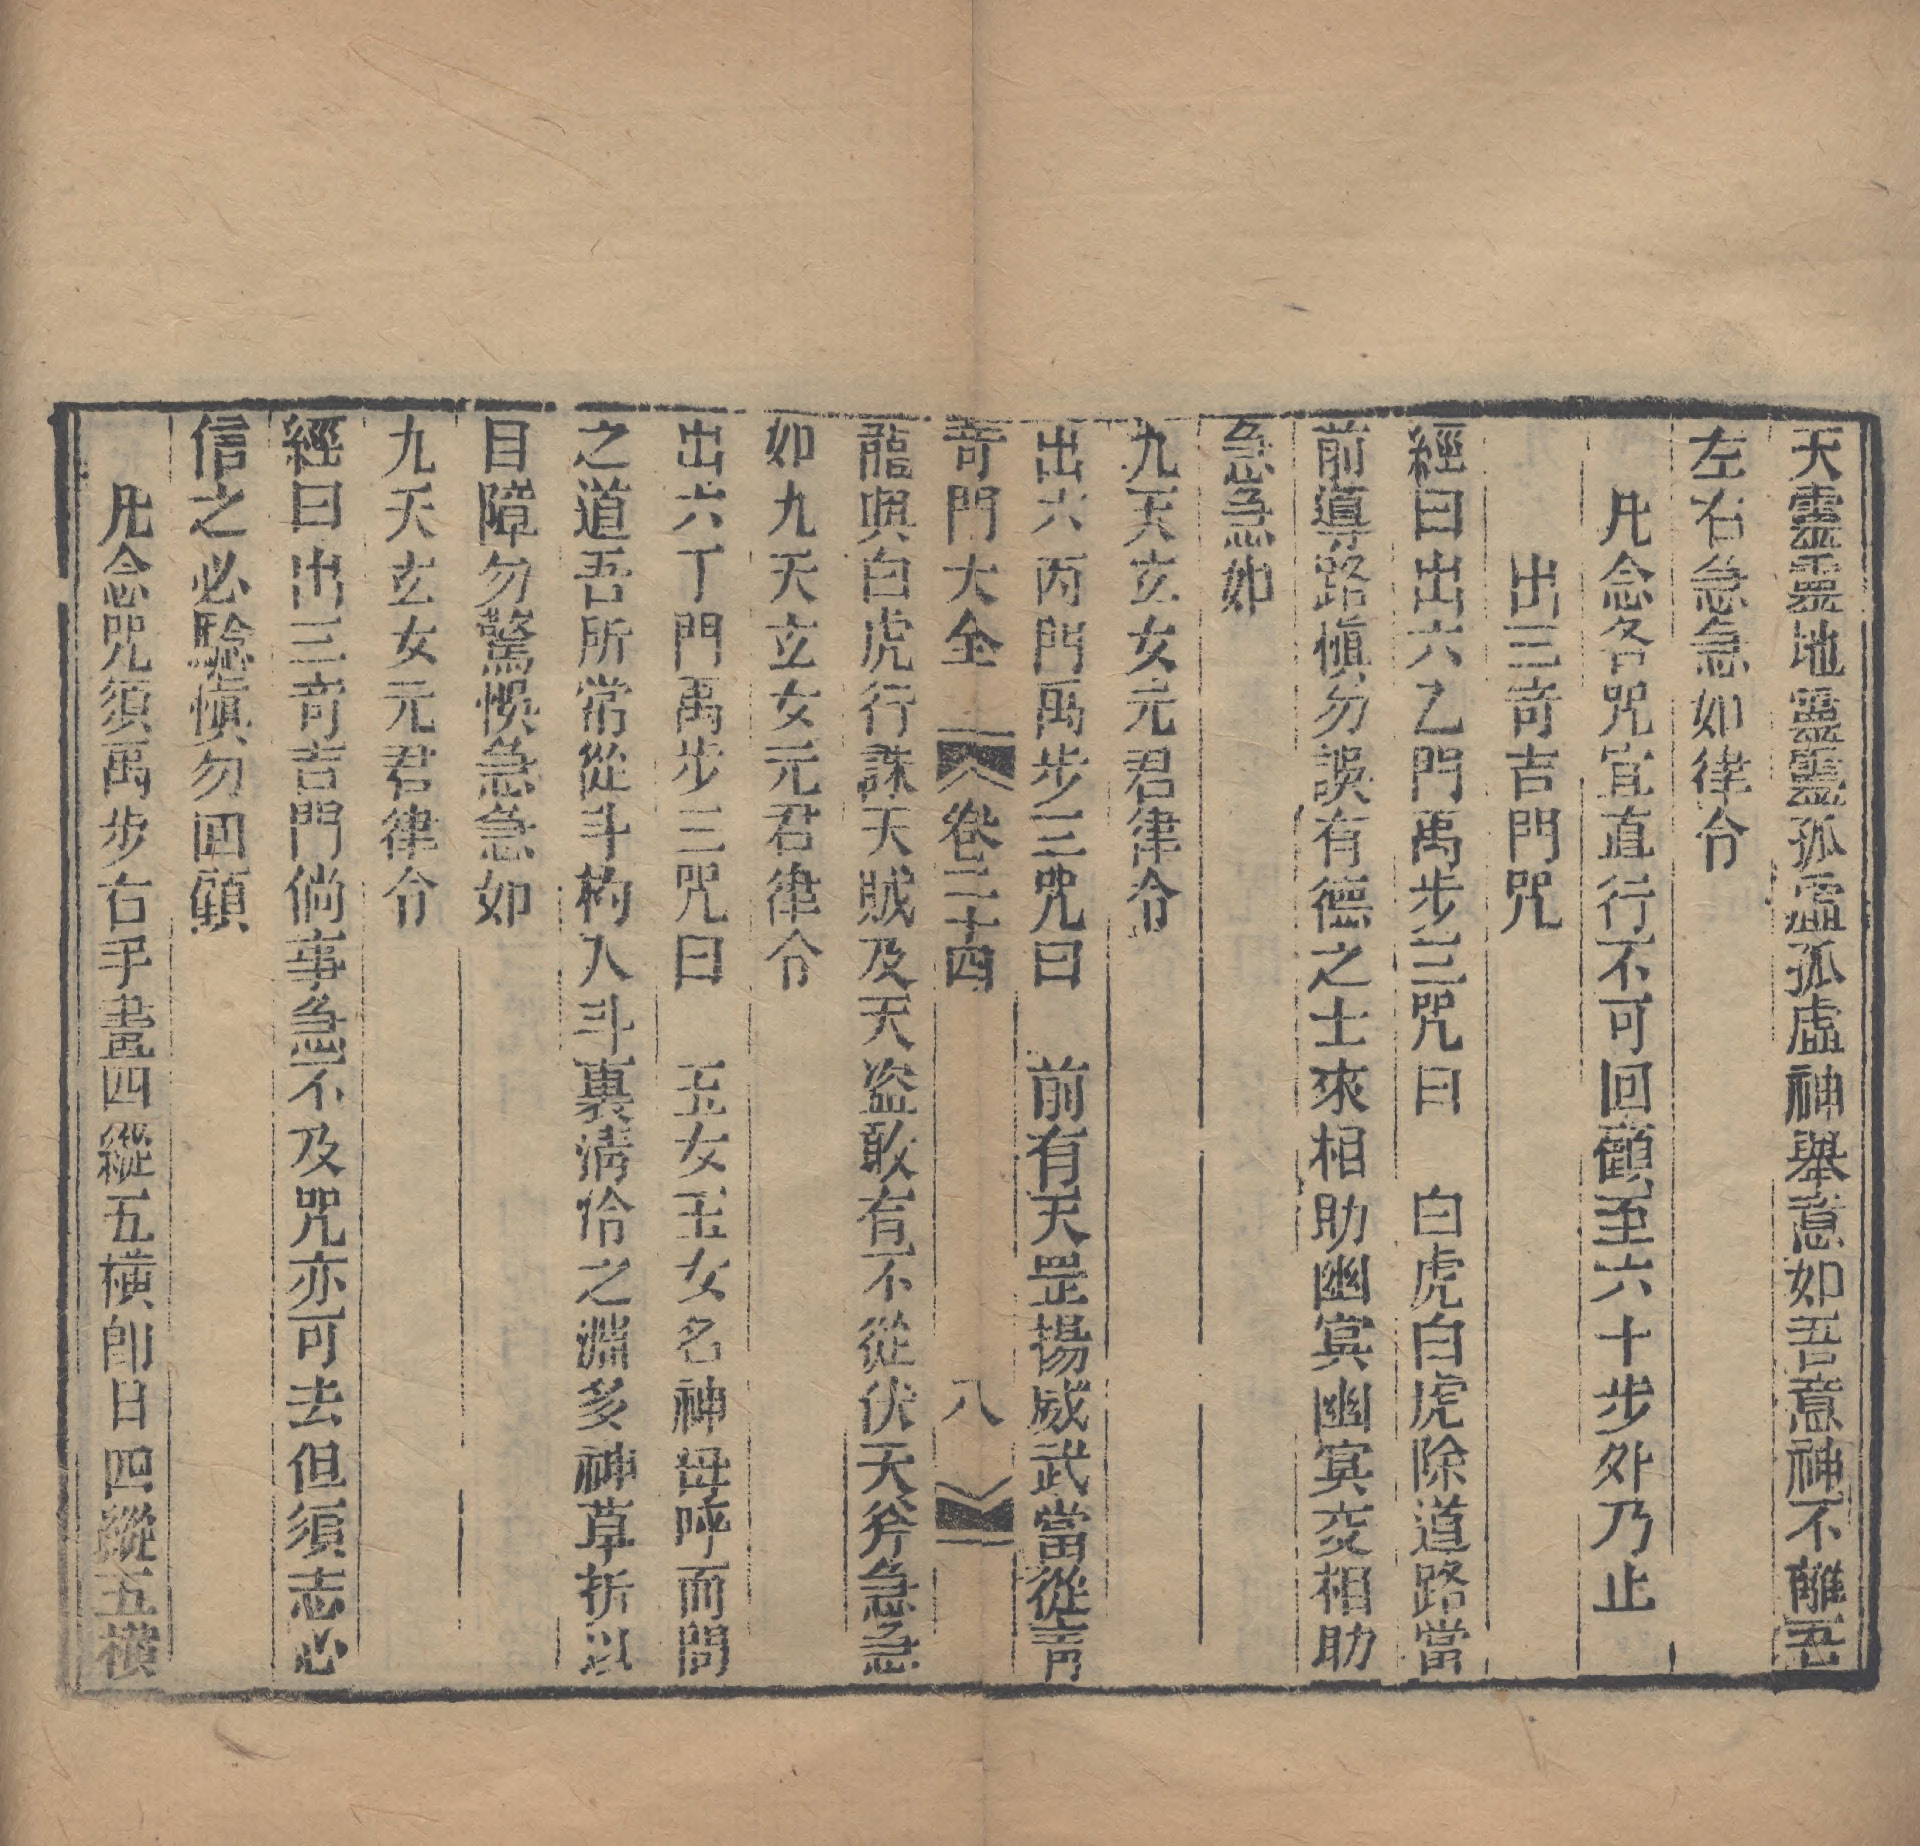 天靈靈地靈靈孤虛孤虛神舉意如吾意神不離吾
左右急急如律令
凡念各咒宜直行不可回顧至六十步外乃止
出三竒吉門咒
經曰出六乙門禹步三咒曰　白虎白虎除道路當
前導路慎勿誤有德之士來相助幽寞幽寞交相助
急急如
九天玄女元君律令
出六丙門禹步三咒曰　前有天罡揚威武當從靑
竒門大全　卷二十四　八
龍與白虎行誅天賊及天盜敢有不從伏天斧急急
如九天玄女元君律令
出六丁門禹步三咒曰　玉女玉女名神母呼而問
之道吾所常從斗杓入斗裏淸伶之淵多神草折以
目障勿驚悞急急如
九天玄女元君律令
經曰出三竒吉門倘事急不及咒亦可去但須志心
信之必驗慎勿回顧
凡念咒須禹步右手畫四縱五橫卽曰四縱五橫